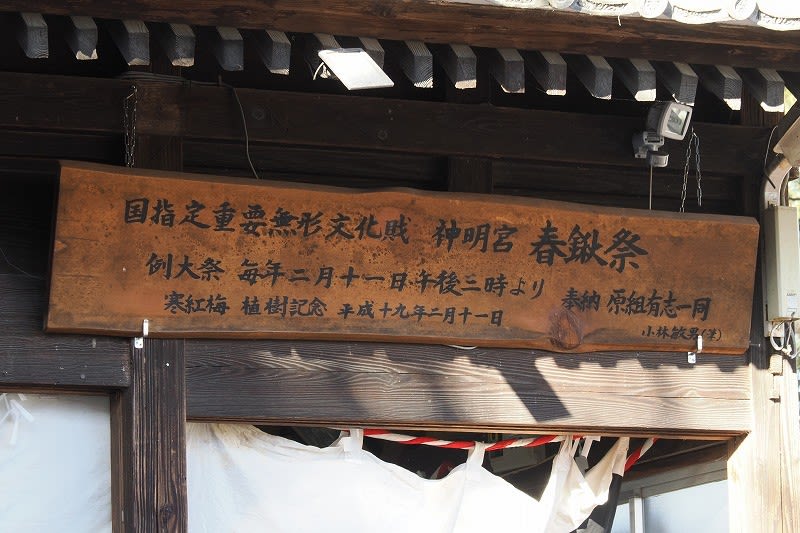 国指定重要無形文化賎 神明宮 春鍬祭
例大祭 毎年二月十一日午後三時より
寒紅梅 植樹記念 平成十九年二月十一日
奉納 原組有志一同
小林敏男(筆)